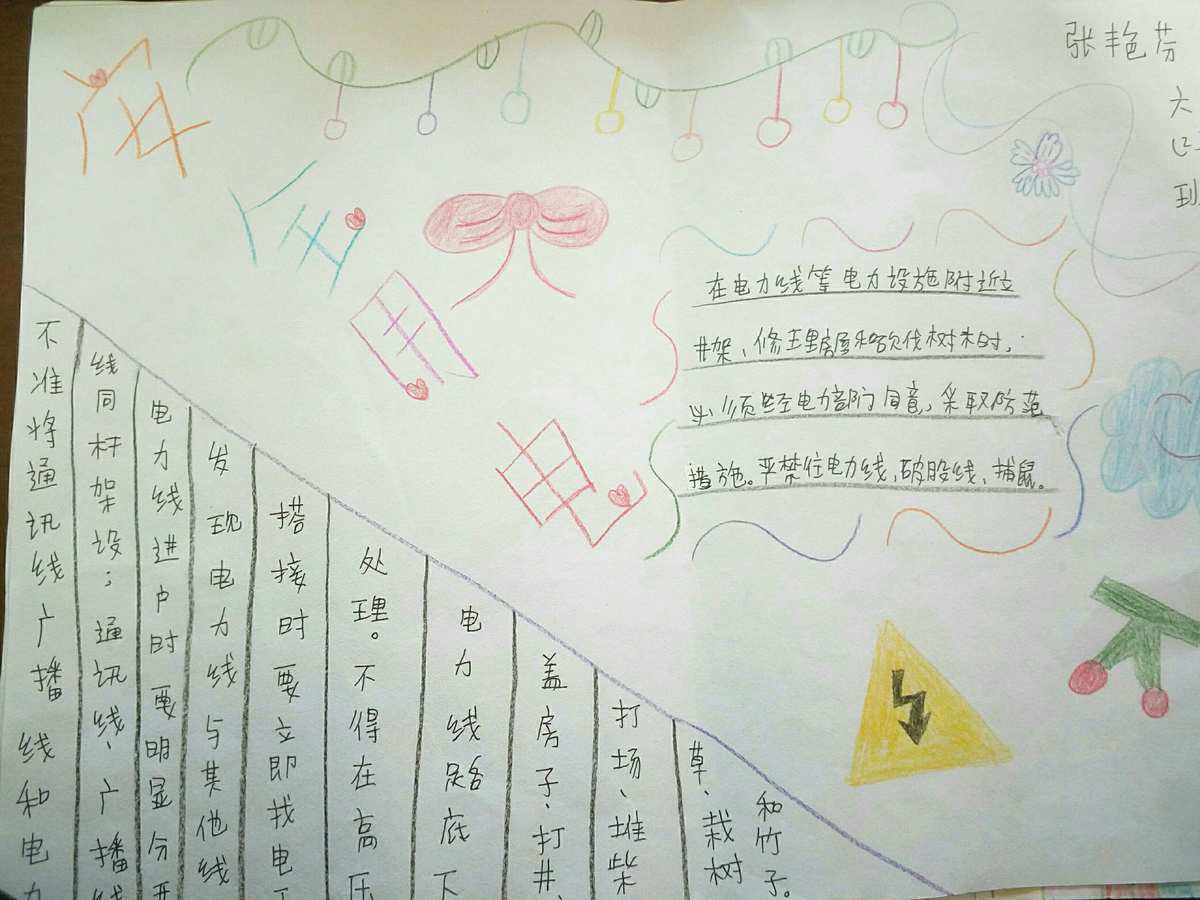 安
全
用
电
张艳芬
六
四
班
在电力线等电力设施附近立
井架、修理房屋和砍伐树木时,
必须经电力部门同意,采取防范
措施。严禁往电力线,破股线,捕鼠。
不准将通讯线广播线和电力
线同杆架设;通讯线、广播线
电力线进户时要明显分开
发现电力线与其他线
搭接时要立即找电工
处理。不得在高压
电力线路底下
盖房子、打井、
打场、堆柴
草、栽树
和竹子。